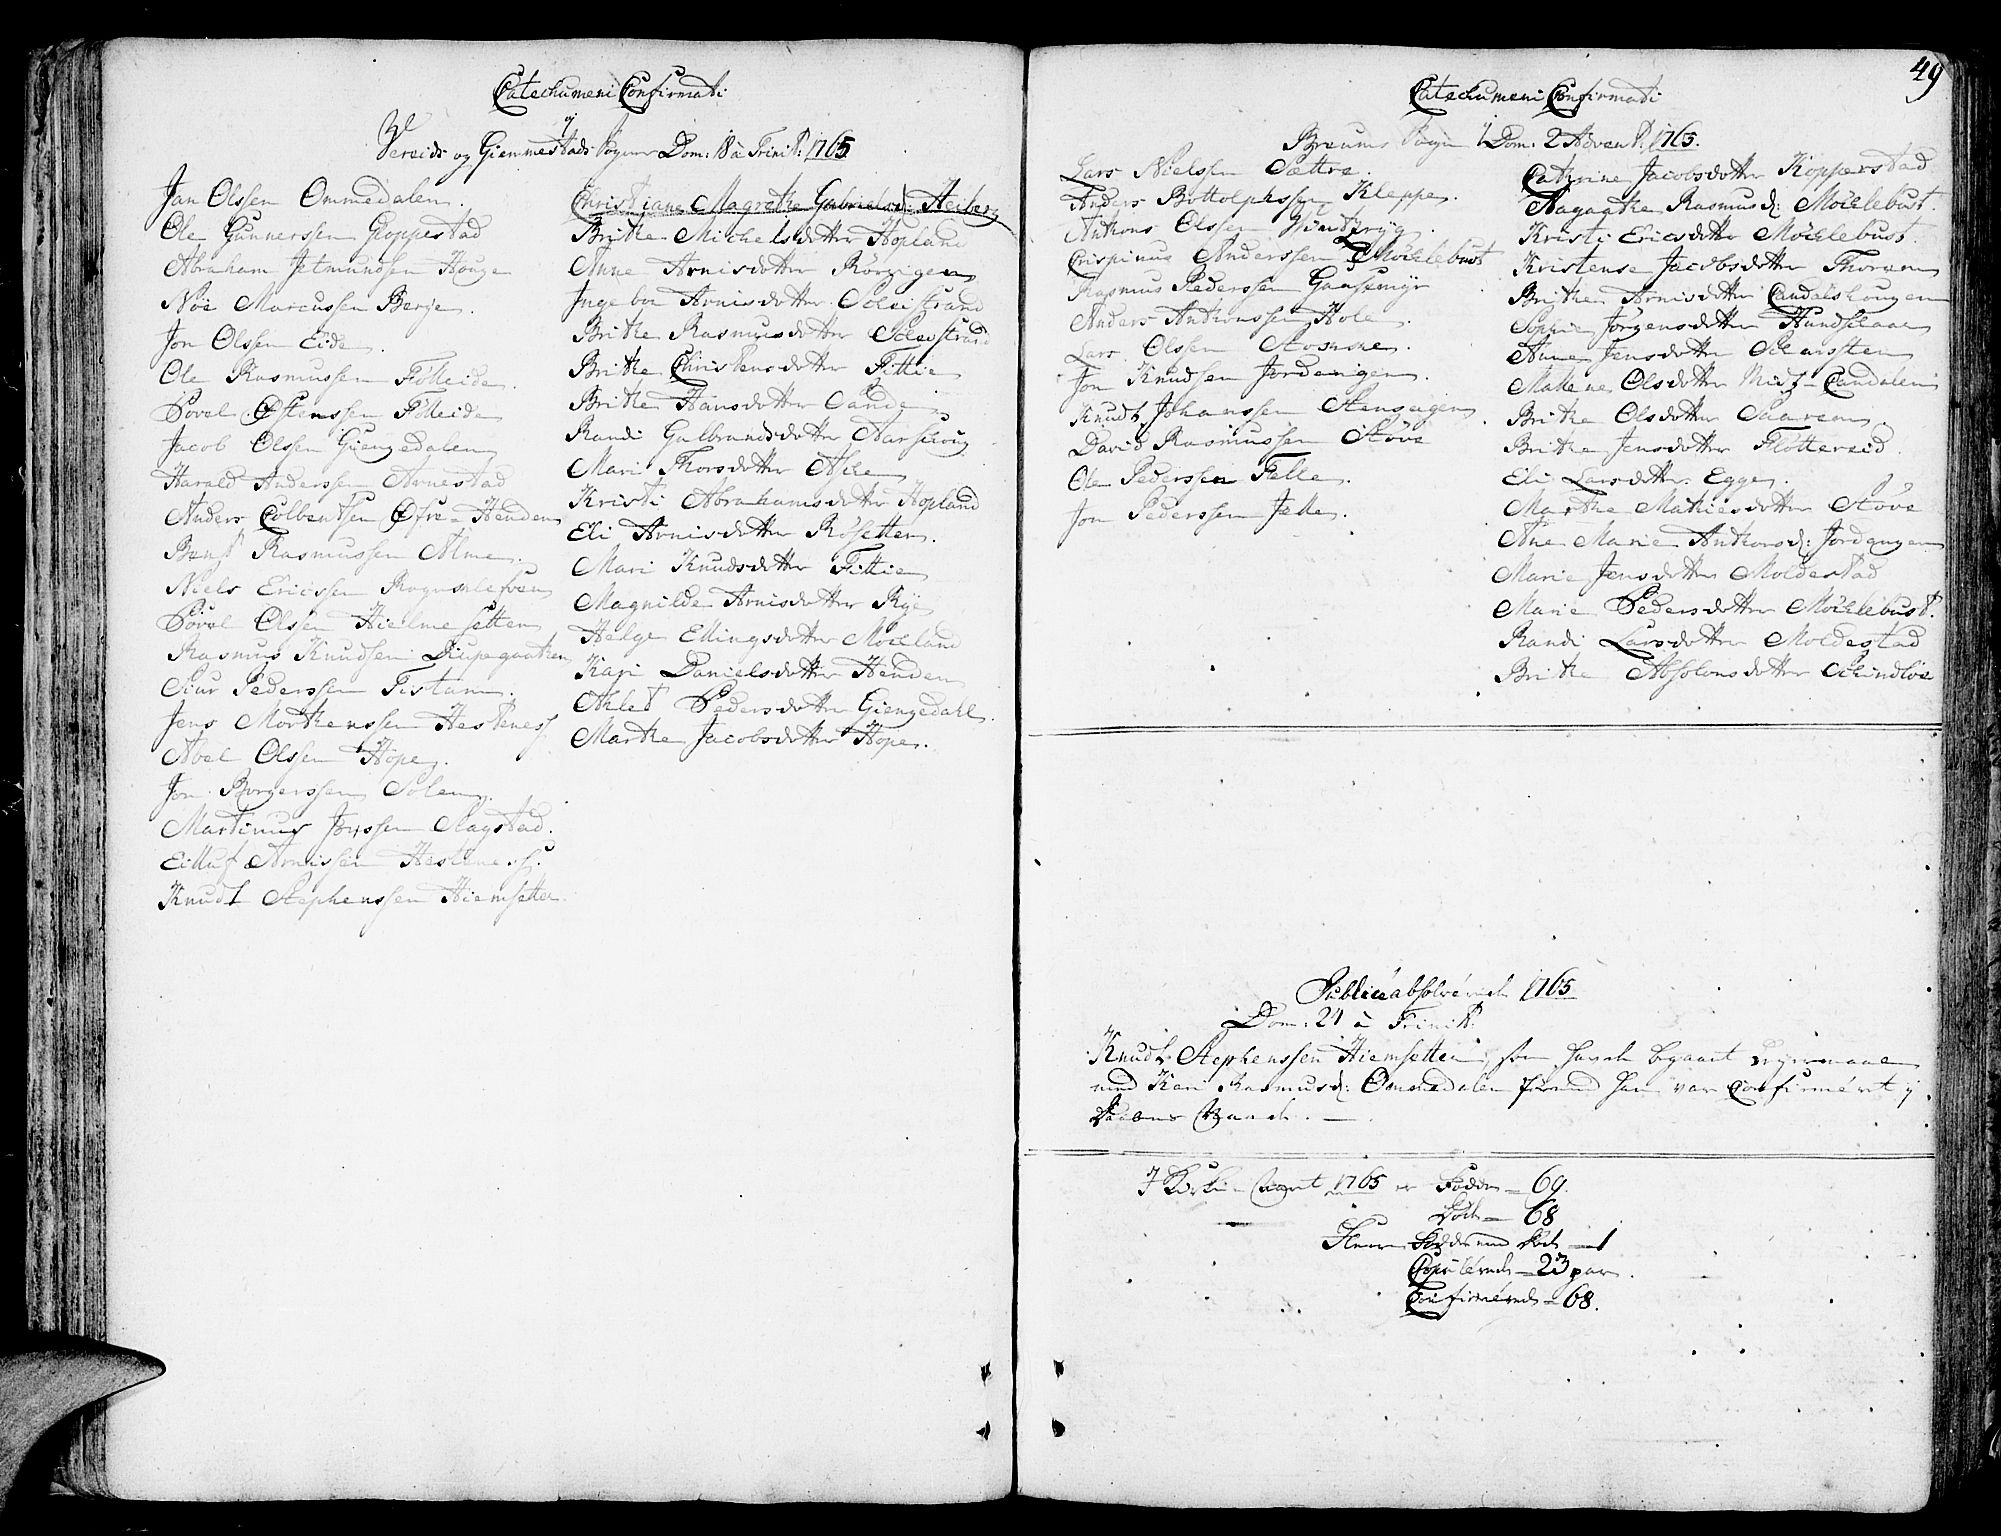 Catechumeni Confirmati
Vereids og Giemmestads Sogner Dom: 18 à Trinit: 1765
Jan Olssen Ommedalen.
Ole Gunnerssen Gloppestad
Abraham Jetmundsen Houge
Noe Marcussen Berge.
Jon Olssen Eide.
Ole Rasmussen Fölleide.
Povel Östenssen Fölleide
Jacob Olssen Giengedalen
Harald Anderssen Arnestad
Anders Colbentsen Öfre-Henden
Bent Rasmussen Alme.
Niels Ericssen
Povel Olsen Hielmesetter
Rasmus Knudsen Diupegaatken
Siur Pederssen Fistam.
Jens Morthenssen Hestenes
Abel Olssen Hope.
Jon Borgerssen Solem.
Martinus Jonssen Ragstad.
Eilluf Arnissen Hestenes.
Knudt Stephenssen Hiemsetter.
Christiane Magrethe Gabrielsd: Heiberg
Brithe Michelsdatter Hopland
Anne Arnisdatter
Ingebor Arnisdatter Scheistrand
Brithe Rasmusdatter Scheistrand
Brithe Christensdatter Fittie
Brithe Hansdatter Sande
Randi Gulbrandsdatter Aarskoug
Mari Thorsdatter Aske
Kristi Abrahamsdatter Hopland
Eli Arnisdatter Rösetter.
Mari Knudsdatter Fittie
Magnilde Arnisdatter Rye
Helge Ellingsdatter Moeland
Kari Danielsdatter Henden
Ahlet Pedersdatter Giengedahl.
Marthe Jacobsdatter Hope.
49
Catechumeni Confirmati
Breums Sogn Dom: 2 Advent: 1765.
Lars Nielssen Sættre.
Anders Bottolphssen Kleppe.
Anthons Olssen
Crispinus Anderssen Möcklebust
Rasmus Pederssen Gaasemyr
Anders Anthonssen Hole.
Lars Olssen
Jon Knudsen Jordanger.
Knudt Johanssen
David Rasmussen Stöve
Ole Pederssen Felle.
Jon Pederssen Felle.
Cathrine Jacobsdatter Kopperstad
Aagaathe Rasmusd: Möcklebust.
Kristi Ericsdatter Möcklebust.
Kristense Jacobsdatter Thorem
Brithe Arnisdatter Sandalskougen
Sophie Jörgensdatter Hundskaar
Anne Jensdatter Skarsten
Malene Olsdatter Midt-Sandalen
Brithe Olsdatter
Brithe Jensdatter Flöttereid.
Eli Larsdatter Egge.
Marthe Mathiesdatter Stöve
Ane Marie Anthonsd: Jordanger
Marie Jensdatter Moldestad
Marie Pedersdatter Möcklebust.
Randi Larsdatter Moldestad
Brithe Absolonsdatter Skindlöe
Publice absolverede 1765
Dom: 24 à Trinit:
Knudt Stephenssen Hiemsetter, som hafde begaaet
med Kari Rasmusd: Ommedalen förend han var Confirmeret i
Daabens Pagt.
I Kirke-Aaret 1765 er Födde - 69.
Döde - 68
Fleere Födde end Döde - 1
Copulerede - 23 par.
Confirmerede - 68.